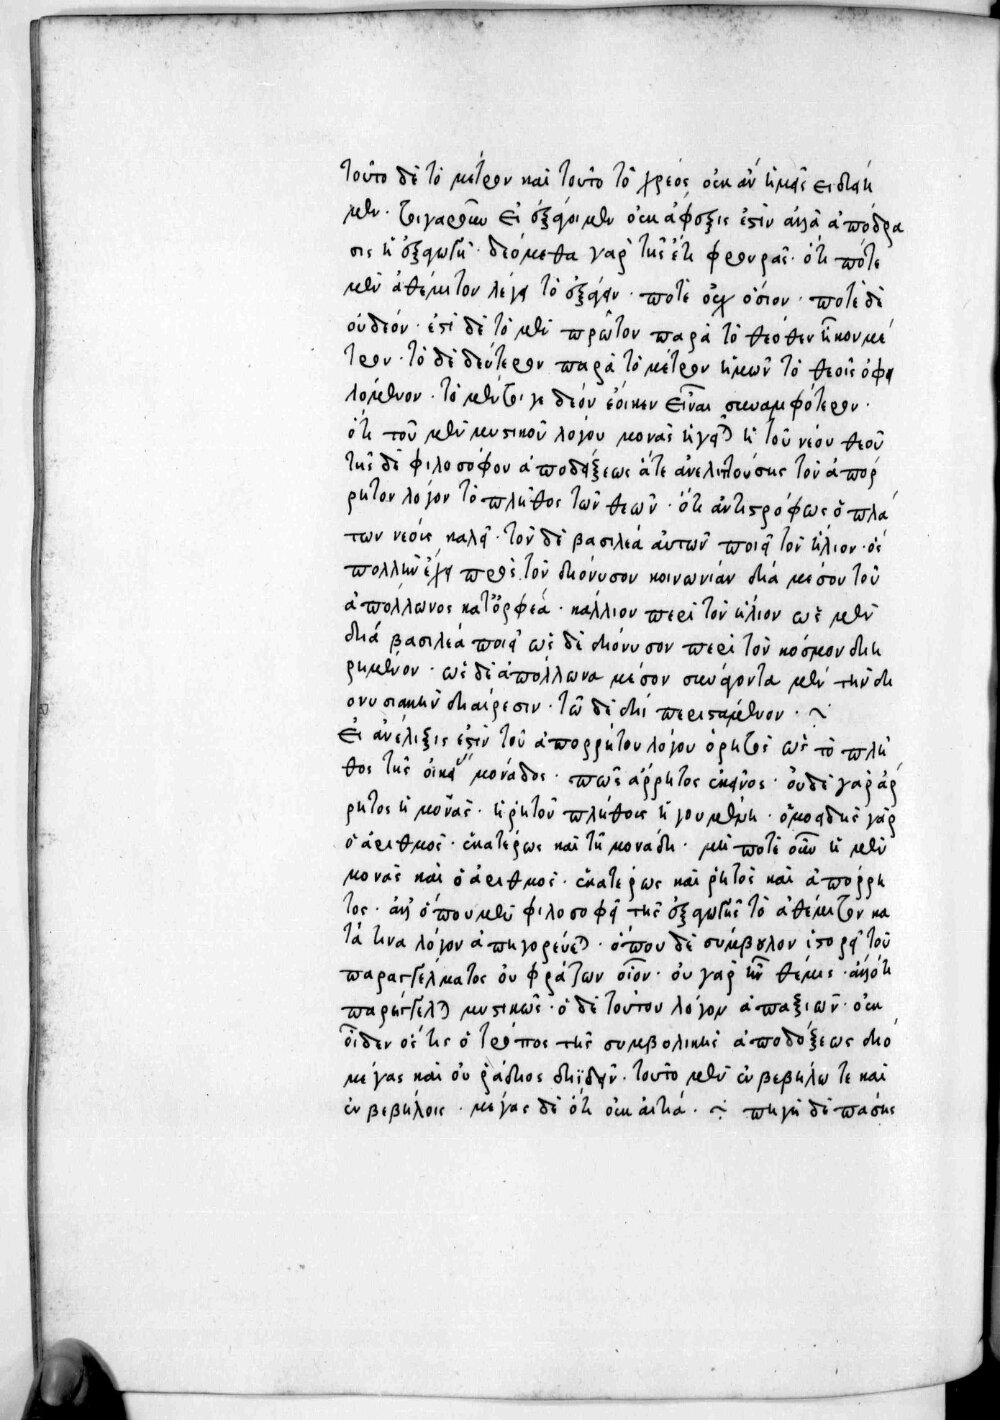 τοῦτο δὲ τὸ μέτρον καὶ τοῦτο τὸ χρέος οὐκ ἂν ἡμεῖς εἰδείη
μεν· τοιγαροῦν εἰ ἐξάγοιμεν οὐκ ἄφεξις ἐστὶν ἀλλὰ ἀπόδρα
σις ἡ ἐξαγωγή· δεόμεθα γὰρ τῆς ἔτι φρουρᾶς· ὅτι πότε
μὲν ἀθέμιτον λέγει τὸ ἐξάγειν· ποτὲ οὐχ ὅσιον· ποτὲ δὲ
οὐ δέον· ἐστὶ δὲ τὸ μὲν πρῶτον παρὰ τὸ θεόθεν ἧκον μέ
τρον· τὸ δὲ δεύτερον παρὰ τὸ μέτρον ἡμῶν τὸ θεοῖς ὀφει
λόμενον· τὸ μέντοι γε δέον ἔοικεν εἶναι συναμφότερον·
ὅτι τοῦ μὲν μυστικοῦ λόγου μονὰς ἡγεῖται ἡ τοῦ νέου θεοῦ
τῆς δὲ φιλοσόφου ἀποδείξεως ἅτε ἀνελιττούσης τὸν ἀπόρ
ρητον λόγον τὸ πλῆθος τῶν θεῶν· ὅτι ἀντιστρόφως ὁ πλά
των νέοις καλεῖ· τὸν δὲ βασιλέα αὐτῶν ποιεῖ τὸν ἥλιον· ὃς
πολλὴν ἔχει πρὸς τὸν διόνυσον κοινωνίαν διὰ μέσου τοῦ
ἀπόλλωνος κατ' ὀρφέα· κάλλιον περὶ τὸν ἥλιον ὡς μὲν
δία βασιλέα ποιεῖ ὡς δὲ διόνυσον περὶ τὸν κόσμον διῃ
ρημένον· ὡς δὲ ἀπόλλωνα μέσον συνάγοντα μὲν τὴν δι
ονυσιακὴν διαίρεσιν· τῷ δὲ διὶ περιστάμενον·
Εἰ ἀνέλιξις ἐστὶν τοῦ ἀπορρήτου λόγου ὁ ῥητὸς ὡς τὸ πλῆ
θος τῆς οἰκείας μονάδος· πῶς ἄρρητος ἐκεῖνος· οὐδὲ γὰρ ἄρ
ρητος ἡ μονὰς· ἡ ῥητοῦ πλήθους ἡγουμένη· ὁμοειδὴς γὰρ
ὁ ἀριθμὸς· ἑκατέρως καὶ τῇ μονάδι· μή ποτε οὖν ἡ μὲν
μονὰς καὶ ὁ ἀριθμὸς· ἑκατέρως καὶ ῥητὸς καὶ ἀπόρρη
τος· ἀλλ' ὅπου μὲν φιλοσοφεῖ τῆς ἐξαγωγῆς τὸ ἀθέμιτον κα
τά τινα λόγον ἀπηγορεύεται· ὅπου δὲ σύμβολον ἱστορεῖ τοῦ
παραγγέλματος οὐ φράζων οἷον· οὐ γὰρ ἦν θέμις· ἀλλ' ὅτι
παρήγγελται μυστικῶς· ὁ δὲ τούτου λόγον ἀπαξιῶν· οὐκ
οἶδεν ὅς τις ὁ τρόπος τῆς συμβολικῆς ἀποδείξεως διὸ
μέγας καὶ οὐ ῥάδιος διϊδεῖν· τοῦτο μὲν ἐν βεβήλῳ τε καὶ
ἐν βεβήλοις· μέγας δὲ ὅτι οὐκ αἰτιά· πηγὴ δὲ πάσης